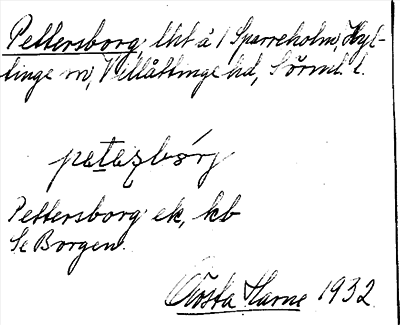 Pettersborg, lht å 1 Sparreholm, Hyl-
linge sn, Villåttinge hd, Sörml. l.
petazbórg
Pettersborg ek, kb
Se Borgen.
Gösta Harne 1932